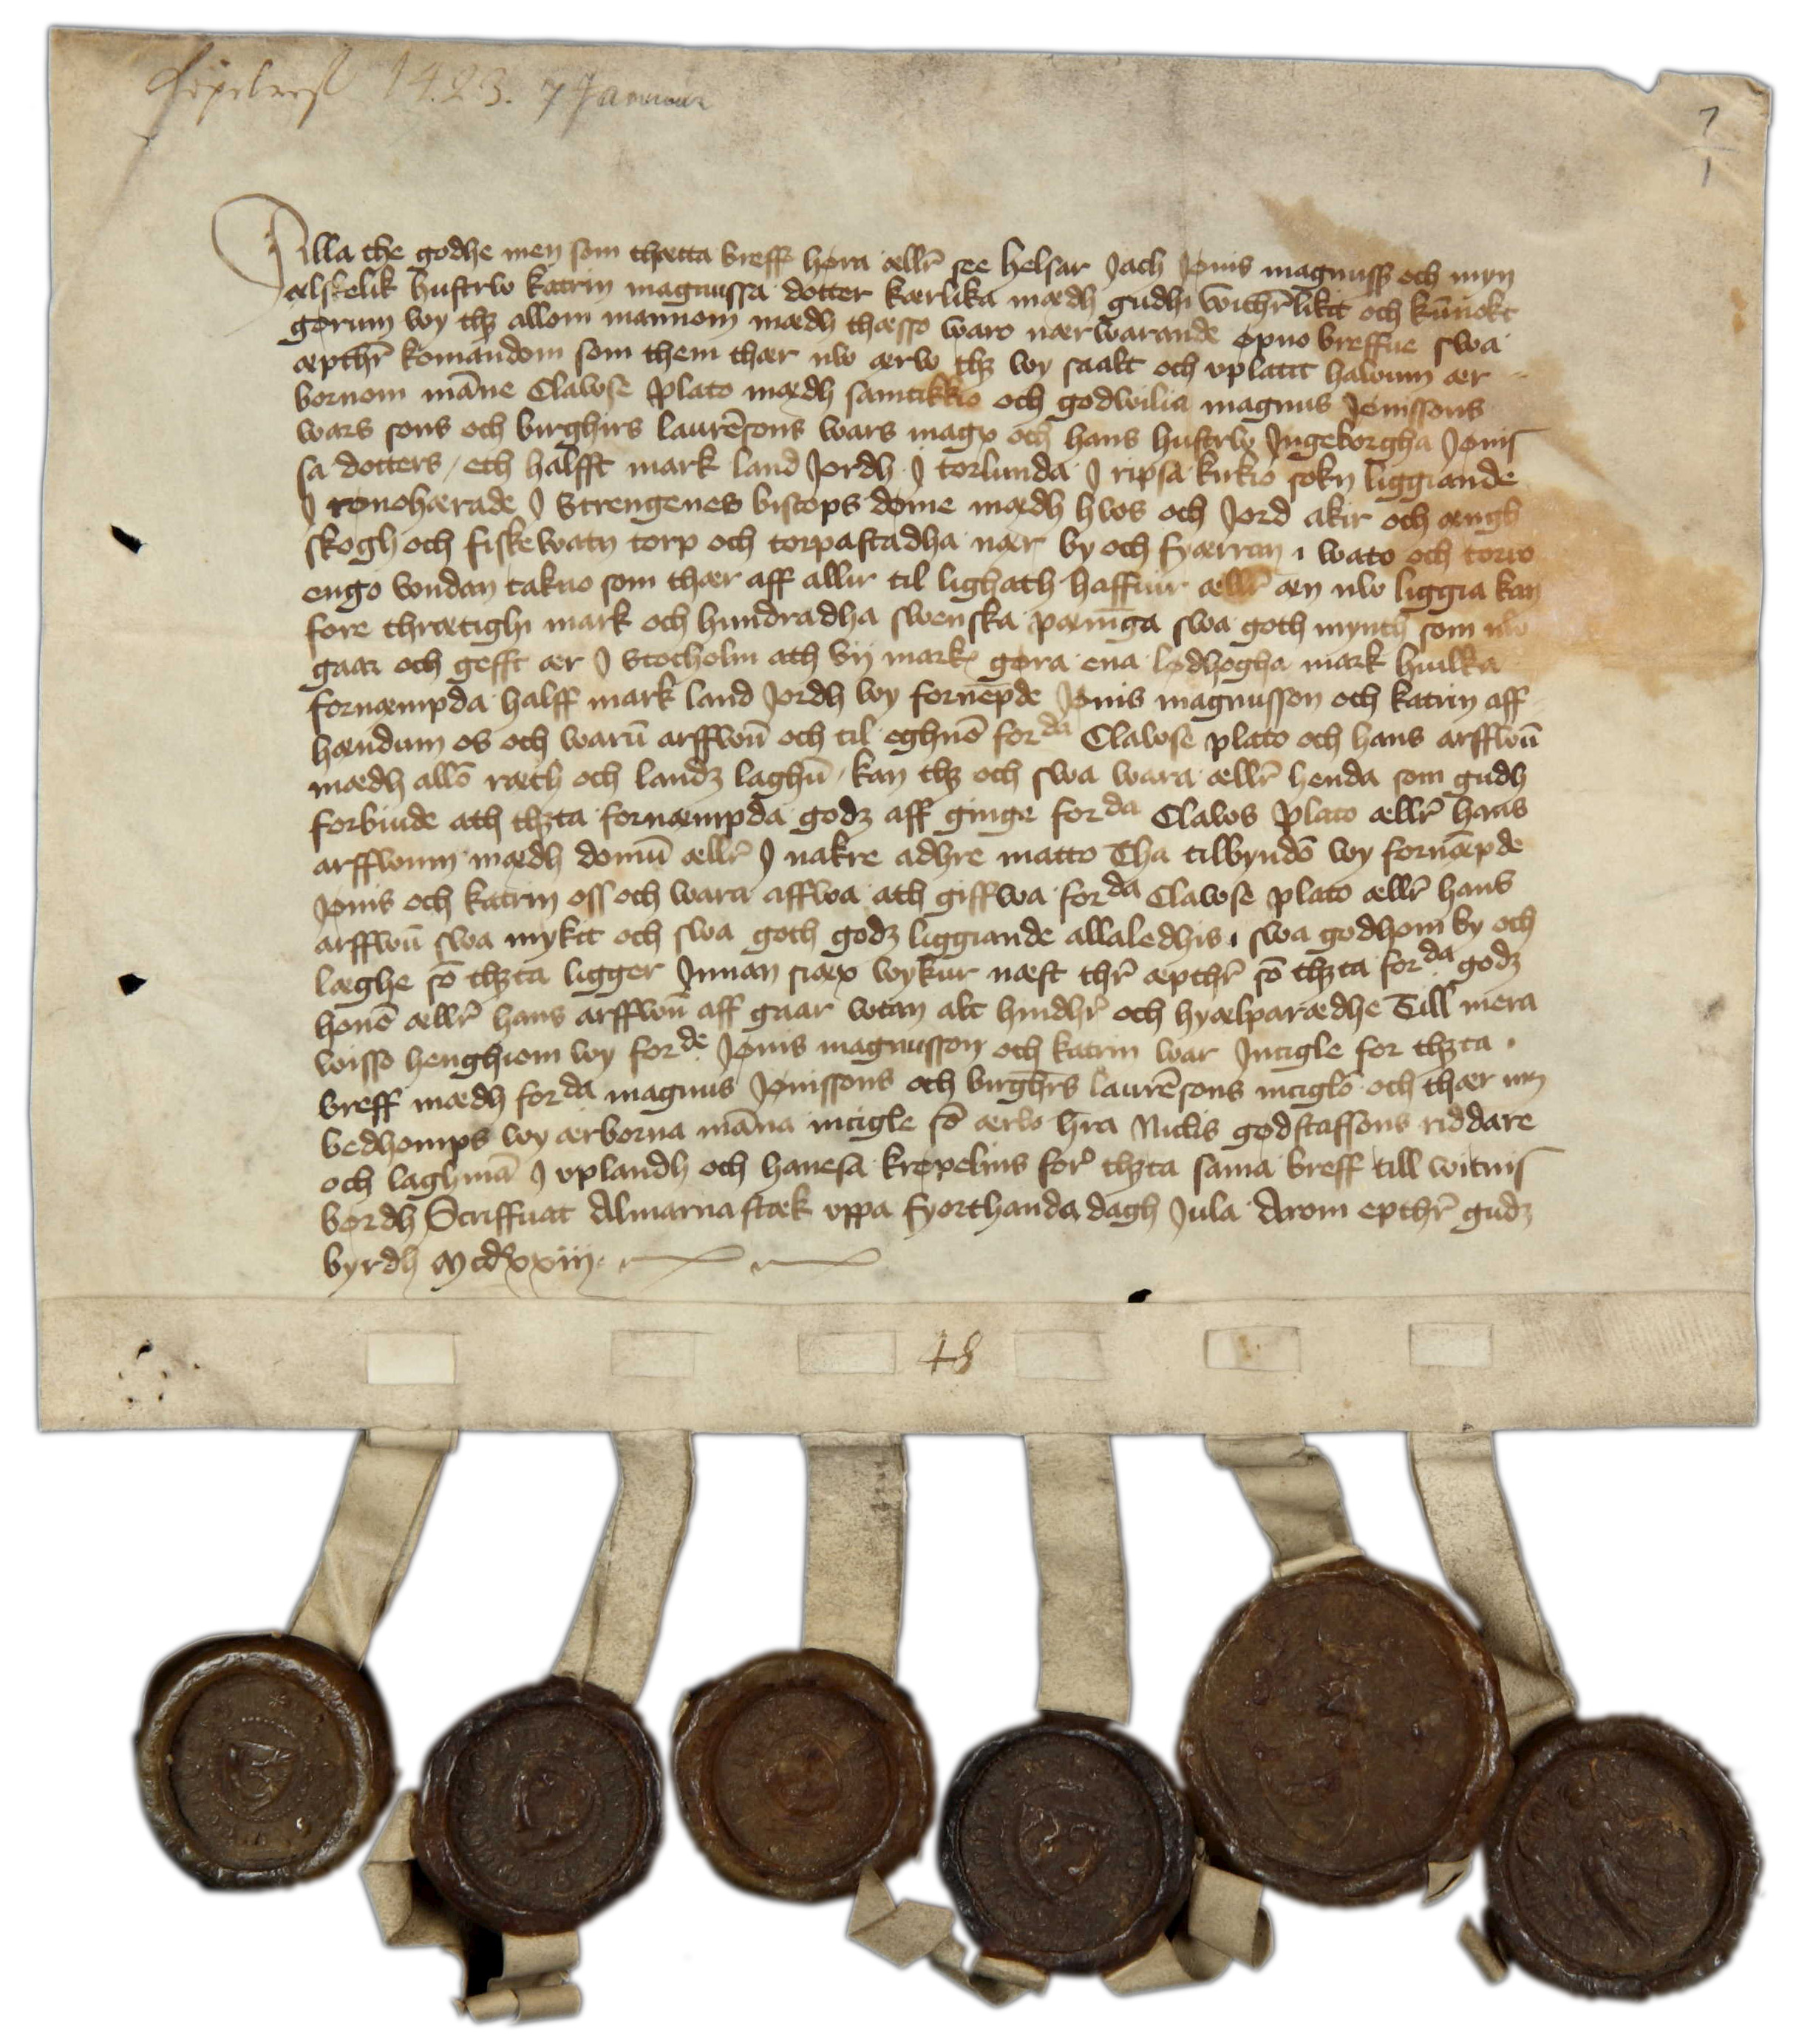 Köpebref 1423. 7 Januari
1
1
Alla the godhe men som thætta breff høra ællr̄ see helsar Jach Jønis magnuss̄ och myn
ælskelik hustrw katrin magnussa dotter kærlika mædh gudhi withr̄likit och kūnokt
gørum wy thꝫ allom mannom mædh thæsso waro nærwarande øpno breffue swa
æpthr̄ komandom som them thær nw ærw thꝫ wy saalt och vplatit hawum ær
bornom māne Clawse plato mædh samtikkio och godwilia magnus Jønissons
wars sons och birghirs laurēsons wars magx och hans hustrw Jngeborgha Jønis
sa dotters / eth halfft mark land Jordh J torlunda J ripsa kirkio sokn liggiande
J rønohærade J Strengenes biscops døme mædh hws och Jord akir och ængh
skogh och fiskewatn torp och torpastadha nær by och fyærran i wato och torro
engo vndan takno som thær aff allir til lighath haffuir ællr̄ æn nw liggia kan
fore thrætighi mark och hundradha swenska pænīga swa goth mynth som nw
gaar och gefft ær J Stocholm ath vij mark gøra ena lødhogha mark huilka
fornæmpda halff mark land Jordh wy fornēpde Jønis magnusson och katrin aff
hændum os och warū arffwū och til eghnō forda Clawse plato och hans arffwū
mædh allō ræth och landꝫ laghū / kan thꝫ och swa wara ællr̄ henda som gudh
forbiude ath thꝫta fornæmpda godꝫ aff ginge forda Claws plato ællr̄ hans
arffwom mædh domū ællr̄ J nakre adhre matto Tha tilbyndō wy fornæpde
Jønis och katrin oss och wara affwa ath giffwa forda Clawse plato ællr̄ hans
arffwū swa mykit och swa goth godꝫ liggiande allaledhis i swa godhom by och
læghe sō thꝫta ligger Jnnan siæx wykur næst thr̄ æpthr̄ sō thꝫta forda godꝫ
honō ællr̄ hans arffwū aff gaar vtan alt hindhr̄ och hyælparædhe Till mera
wisso henghiom wy forde Jønis magnusson och katrin war Jncigle for thꝫta
breff mædh forda magnus Jønissons och birghr̄s laurēsons inciglō och thær um
bedhomps wy ærborna māna incigle sō ærw hr̄a Niclis gødstaffsons riddare
och laghmā J vplandh och hanesa krøpelins for thꝫta sama breff till witnis
bordh Scriffuat Almarna stæk vppa fyorthanda dagh Jula Arom epthr̄ gudꝫ
byrdh mcdxxiii.
48